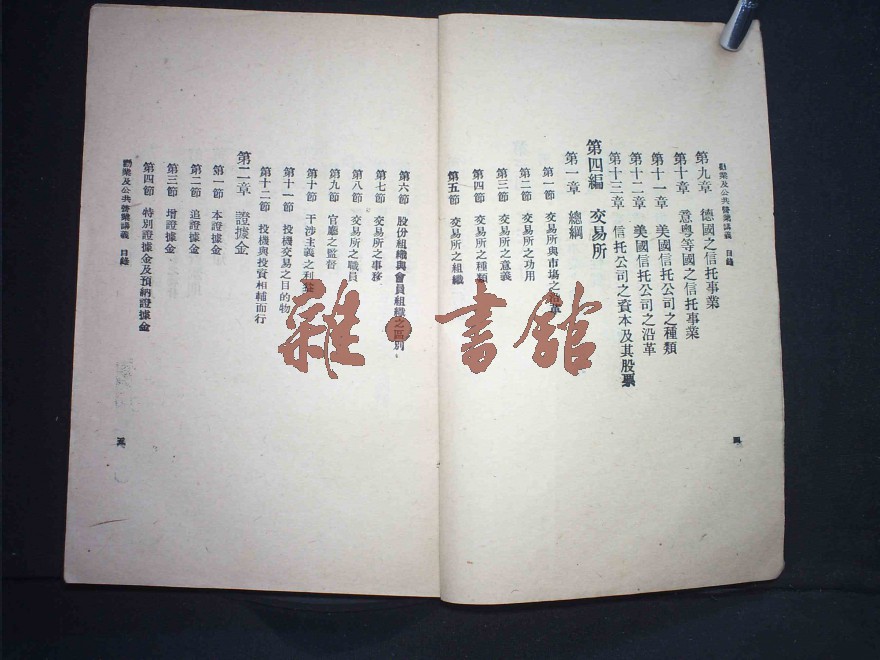 勸業及公共營業講義 目錄
第九章 德國之信托事業
第十章 意粵等國之信托事業
第十一章 美國信托公司之種類
第十二章 美國信托公司之沿革
第十三章 信托公司之資本及其股票
第四編 交易所
第一章 總綱
第一節 交易所與市場之沿革
第二節 交易所之功用
第三節 交易所之意義
第四節 交易所之種類
第五節 交易所之組織
四
第六節 股份組織與會員組織之區別
第七節 交易所之事務
第八節 交易所之職員
第九節 官廳之監督
第十節 干涉主義之利益
第十一節 投機交易之目的物
第十二節 投機與投資相輔而行
第二章 證據金
第一節 本證據金
第二節 追證據金
第三節 增證據金
第四節 特別證據金及預納證據金
勸業及公共營業講義 目錄
五
雜·書館